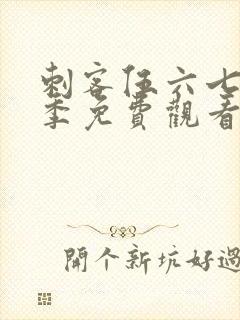 刺客伍六七
季免費觀看
開个新坑好過